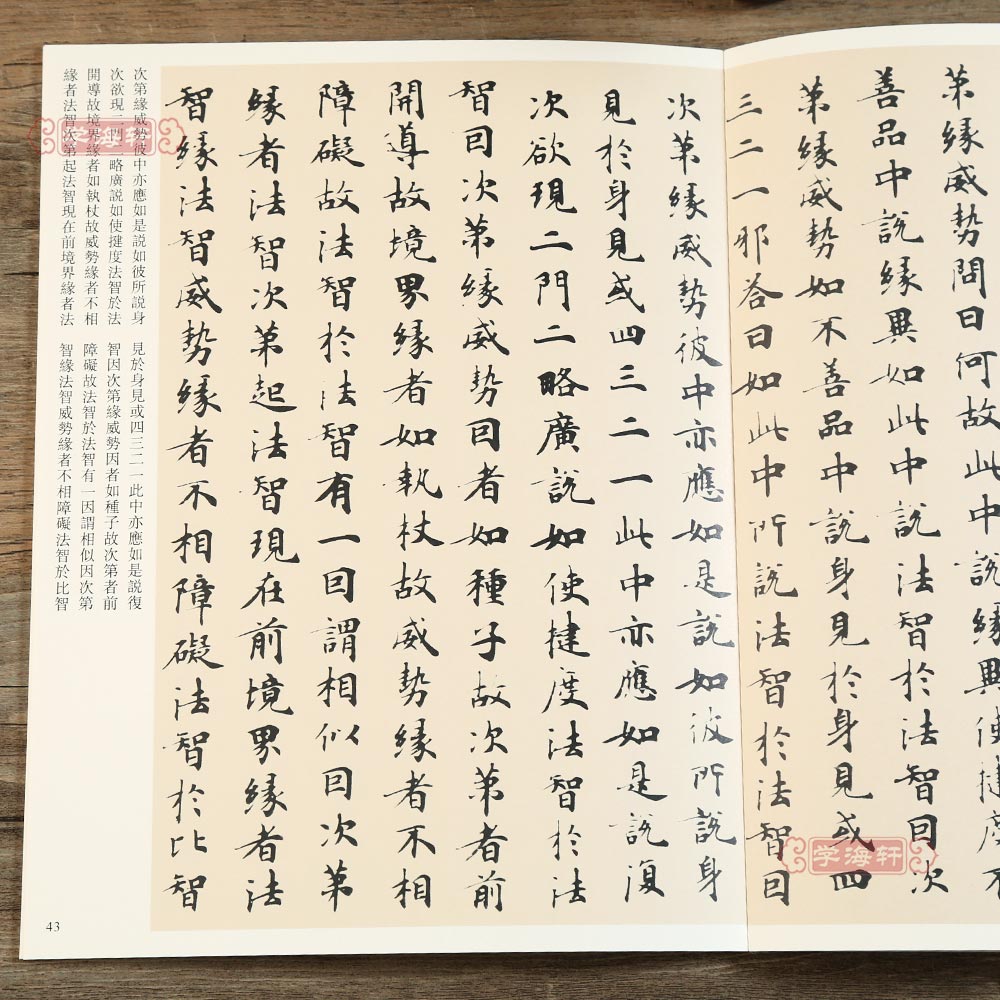 第緣威勢問曰何故此中說緣異使揵度不
善品中說緣異如此中說法智於法智因次
第緣威勢如不善品中說身見於身見或四
三二一邪答曰如此中所說法智於法智因
次第緣威勢彼中亦應如是說如彼所說身
見於身見或四三二一此中亦應如是說復
次欲現二門二略廣說如使揵度法智於法
智因次第緣威勢因者如種子故次第者前
開導故境界緣者如執杖故威勢緣者不相
障礙故法智於法智有一因謂相似因次第
緣者法智次第起法智現在前境界緣者法
智緣法智威勢緣者不相障礙法智於比智
次第緣威勢彼中亦應如是說如彼所說身
見於身見或四三二一此中亦應如是說復
次欲現二門二略廣說如使揵度法智於法
智因次第緣威勢因者如種子故次第者前
開導故境界緣者如執杖故威勢緣者不相
障礙故法智於法智有一因謂相似因次第
緣者法智次第起法智現在前境界緣者法
智緣法智威勢緣者不相障礙法智於比智
43
学海轩
学海轩